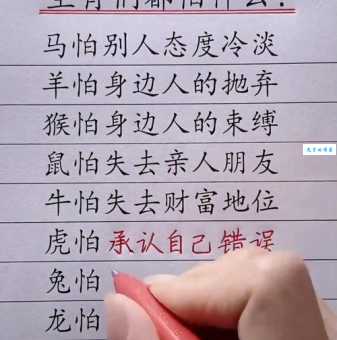 生肖们都怕什么?
马怕别人态度冷淡
羊怕身边人的抛弃
猴怕身边人的束缚
鼠怕失去亲人朋友
牛怕失去财富地位
虎怕承认自己错误
兔怕
龙怕